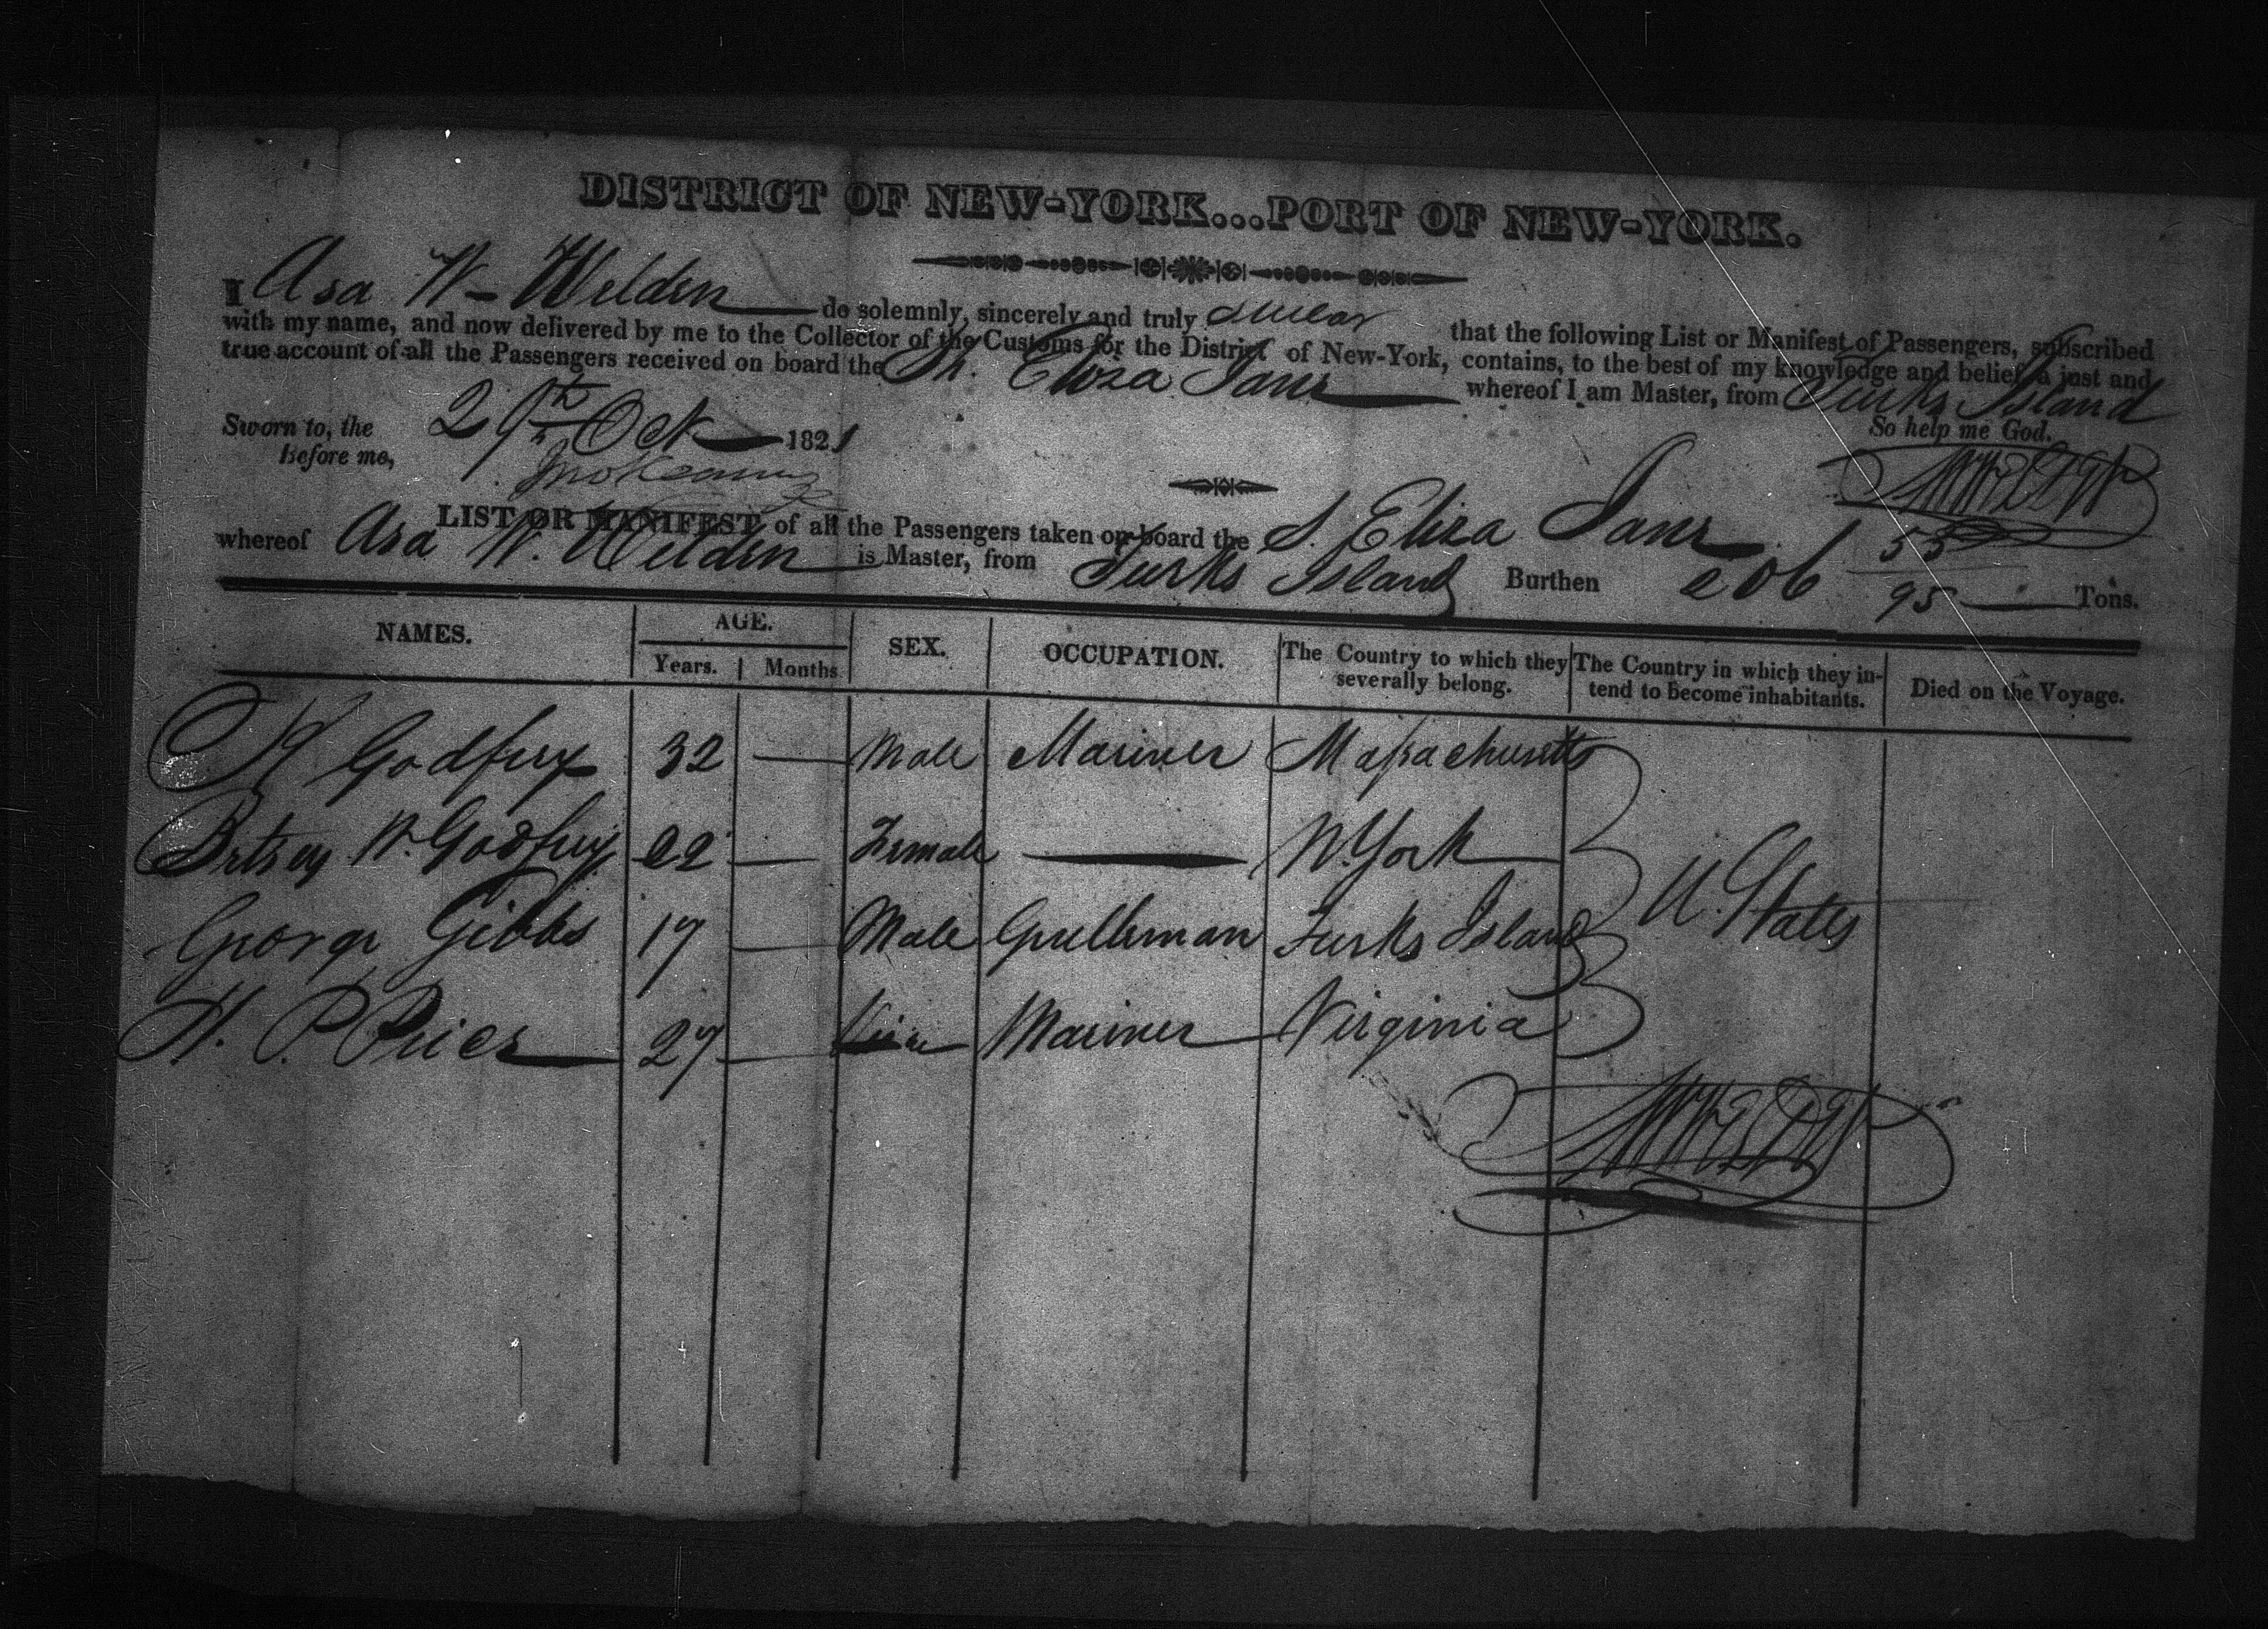 DISTRICT OF NEW-YORK...PORT OF NEW-YORK.
I Asa W - Welden do solemnly, sincerely and truly swear that the following List or Manifest of Passengers, subscribed
with my name, and now delivered by me to the Collector of the Customs for the District of New-York, contains, to the best of my knowledge and belief, a just and
true account of all the Passengers received on board the Sh. Eliza Jane whereof I am Master, from Turks Island
So help me God.
Sworn to, the 29th Oct 1821
Before me,
LIST OR MANIFEST of all the Passengers taken on board the S. Eliza Jane
whereof Asa W. Welden is Master, from Turks Island Burthen 206 55/95 Tons.
NAMES. AGE. SEX. OCCUPATION. The Country to which they severally belong. The Country in which they intend to become inhabitants. Died on the Voyage.
Years. Months
Godfrey 32 — Male Mariner Massachusetts
Betsey W. Godfrey 22 — Female — N. York
George Gibbs 17 — Male Gentleman Turks Island U. States
H. P. Price 27 — Mariner Virginia